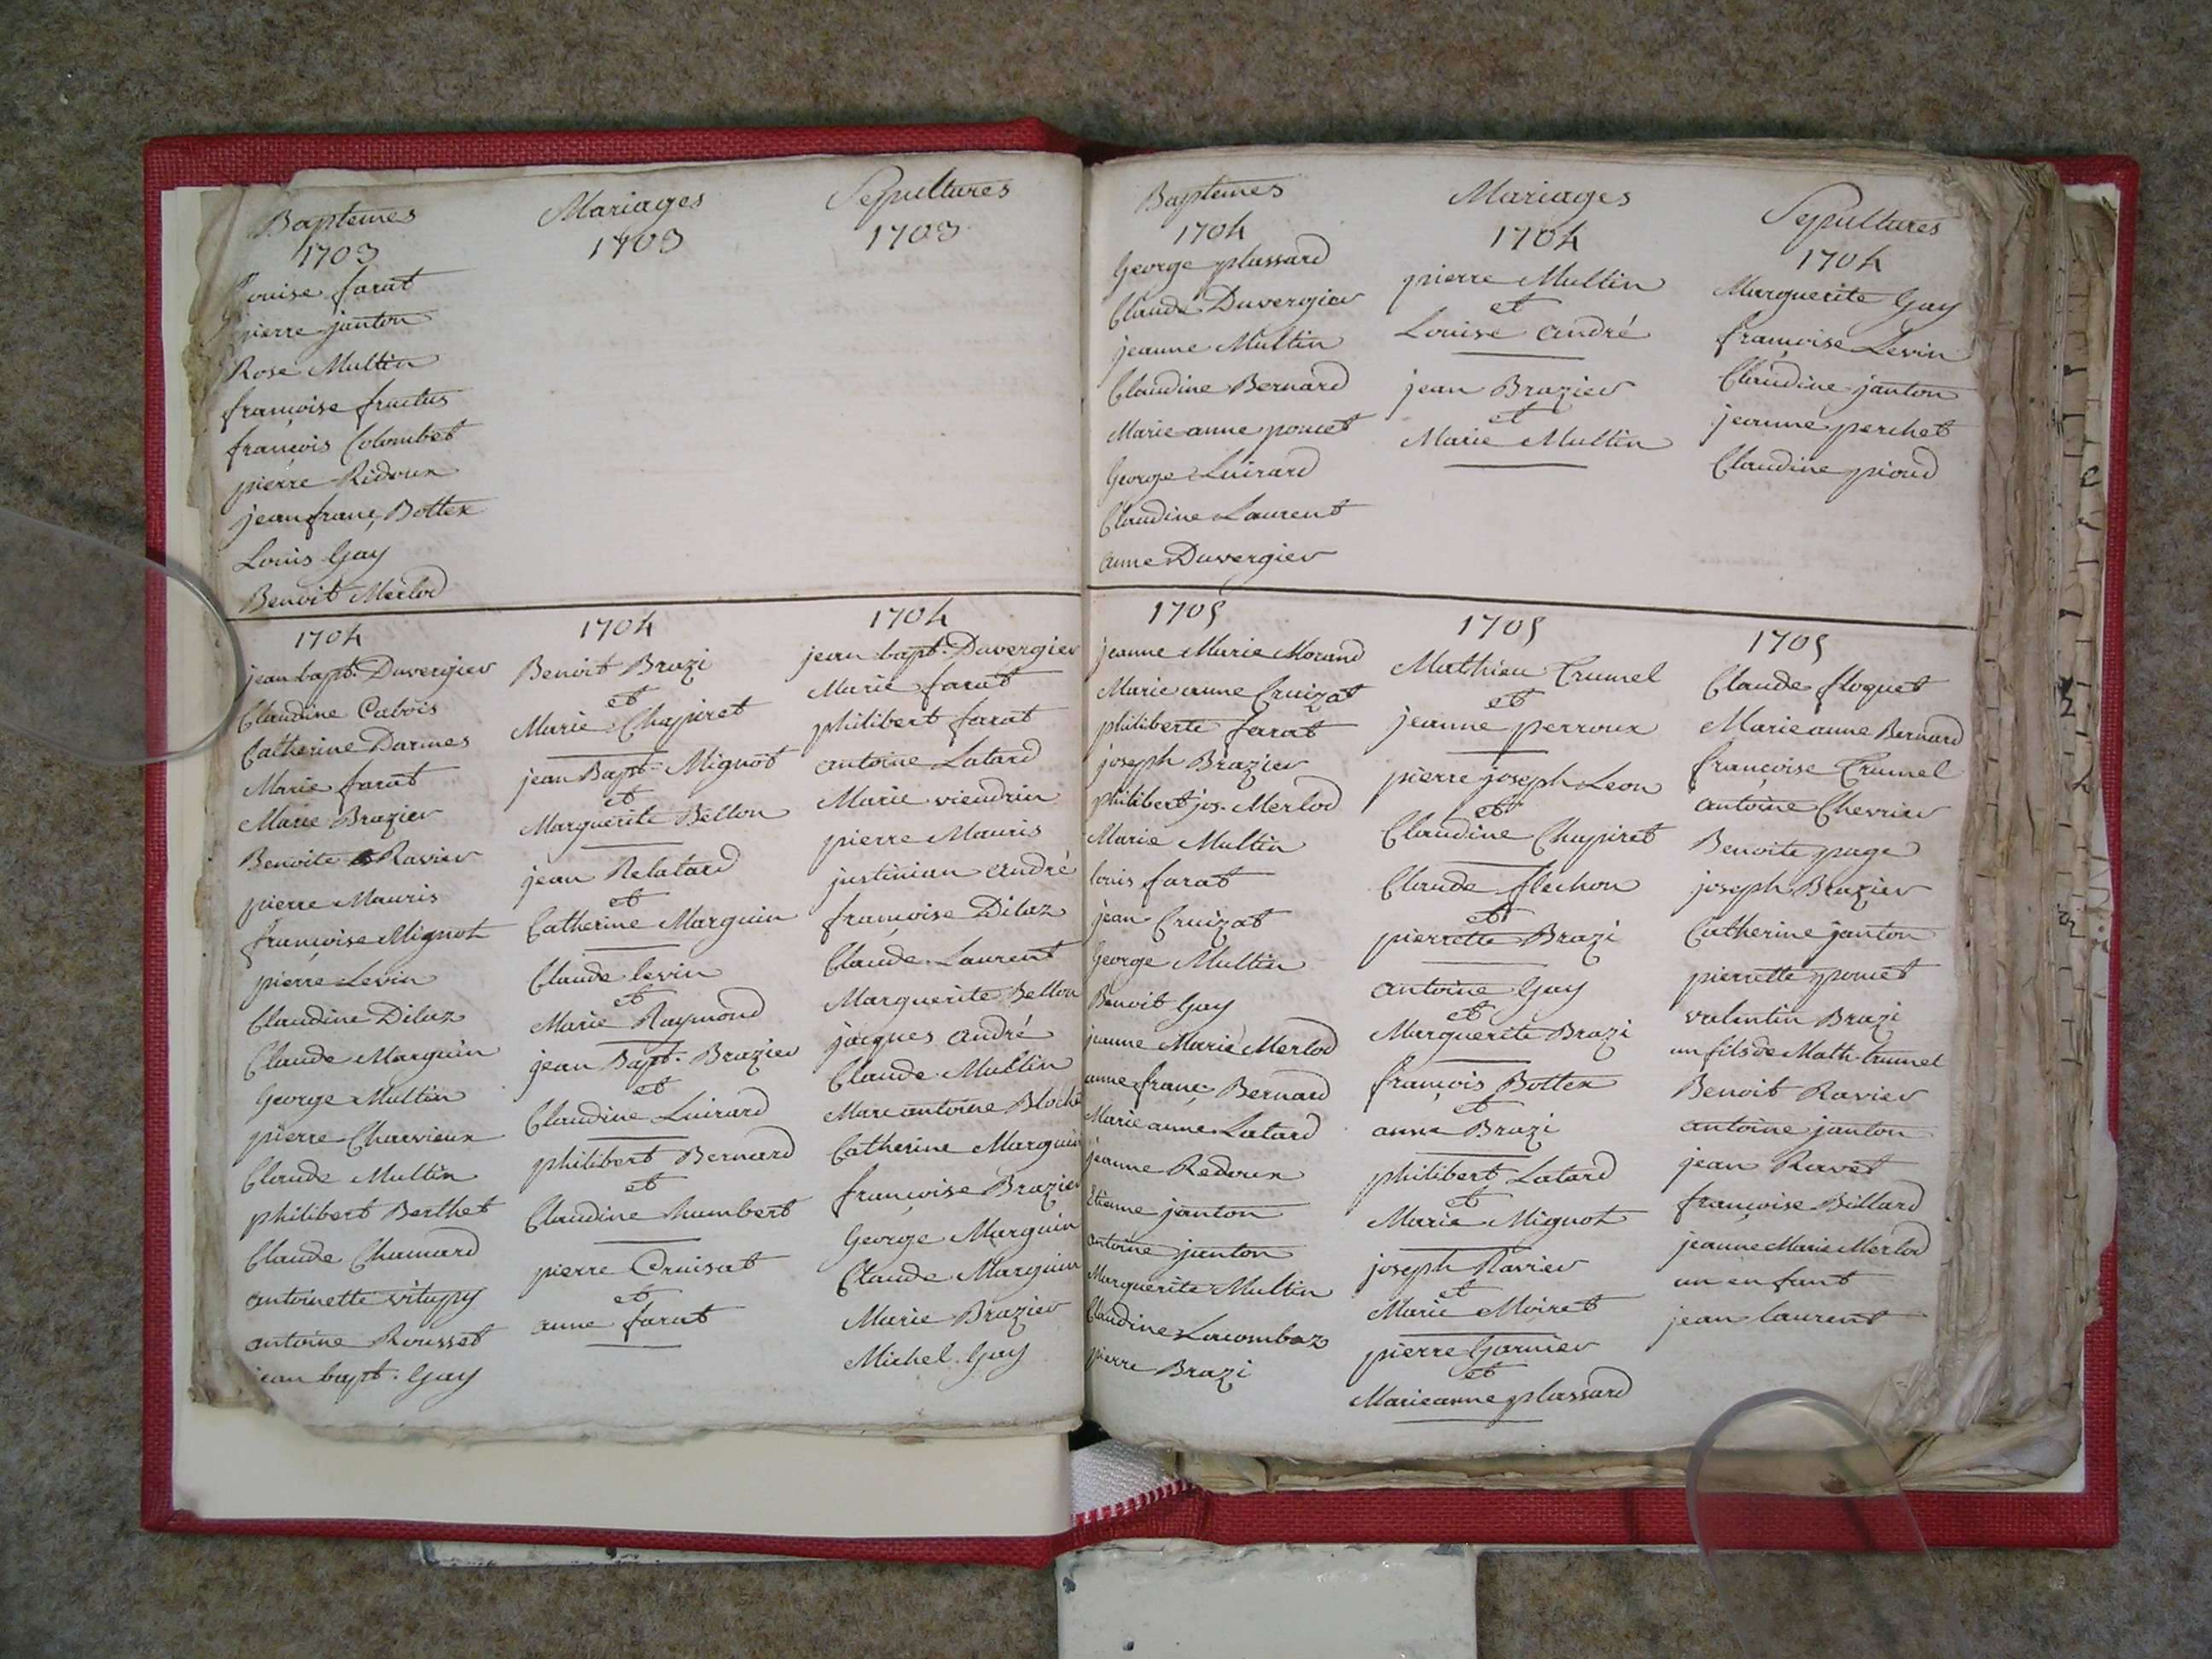 Baptemes
1703
Louise farat
pierre janton
Rose Multin
françoise fructus
françois Colombet
pierre Ridoux
jean franç. Bottex
Louis Gay
Benoit Merlod
Mariages
1703
Sepultures
1703
1704
jean bapt. Duvergier
Claudine Cabois
Catherine Darmes
Marie farat
Marie Brazier
Benoite Ravier
pierre Mauris
françoise Mignot
pierre Levin
Claudine Dilaz
Claude Marguin
George Multin
pierre Charvieux
Claude Multin
philibert Berthet
Claude Chanard
antoinette vitupy
antoine Rousset
jean bapt. Gay
1704
Benoit Brazi
et
Marie Chapiret
jean Bapt. Mignot
et
Marguerite Bellon
jean Relatard
et
Catherine Marguin
Claude levin
et
Marie Raymond
jean Bapt. Brazier
et
Claudine Luirard
philibert Bernard
et
Claudine humbert
pierre Cruisat
et
anne farat
1704
jean bapt. Duvergier
Marie farat
philibert farat
antoine Latard
Marie viendrin
pierre Mauris
justinian andré
françoise Dilaz
Claude Laurent
Marguerite Bellon
jacques andré
Claude Multin
Marc antoine Bloche
Catherine Marguin
françoise Brazier
George Marguin
Claude Marguin
Marie Brazier
Michel Gay
Baptemes
1704
George plassard
Claude Duvergier
jeanne Multin
Claudine Bernard
Marie anne poncet
George Luirard
Claudine Laurent
anne Duvergier
Mariages
1704
pierre Multin
et
Louise andré
jean Brazier
et
Marie Multin
Sepultures
1704
Marguerite Gay
françoise Levin
Claudine janton
jeanne perchet
Claudine pioud
1705
jeanne Marie Morand
Marie anne Cruizat
philiberte farat
joseph Brazier
philibert jos. Merlod
Marie Multin
louis farat
jean Cruizat
George Multin
Benoit Gay
jeanne Marie Merlod
anne franç. Bernard
Marie anne Latard
jeanne Redoux
Etienne janton
antoine janton
Marguerite Multin
Claudine Lacombaz
pierre Brazi
1705
Mathieu Trumel
et
jeanne perroux
pierre joseph Leon
et
Claudine Chapiret
Claude flechon
et
pierrette Brazi
antoine Gay
et
Marguerite Brazi
françois Bottex
et
anne Brazi
philibert Latard
et
Marie Mignot
joseph Ravier
et
Marie Moiret
pierre Garnier
et
Marieanne plassard
1705
Claude floquet
Marie anne Bernard
françoise Trumel
antoine Chevrier
Benoite page
joseph Brazier
Catherine janton
pierrette poncet
valentin Brazi
un fils de Math. trumel
Benoit Ravier
antoine janton
jean Ravet
françoise Billard
jeanne Marie Merlod
un enfant
jean laurent